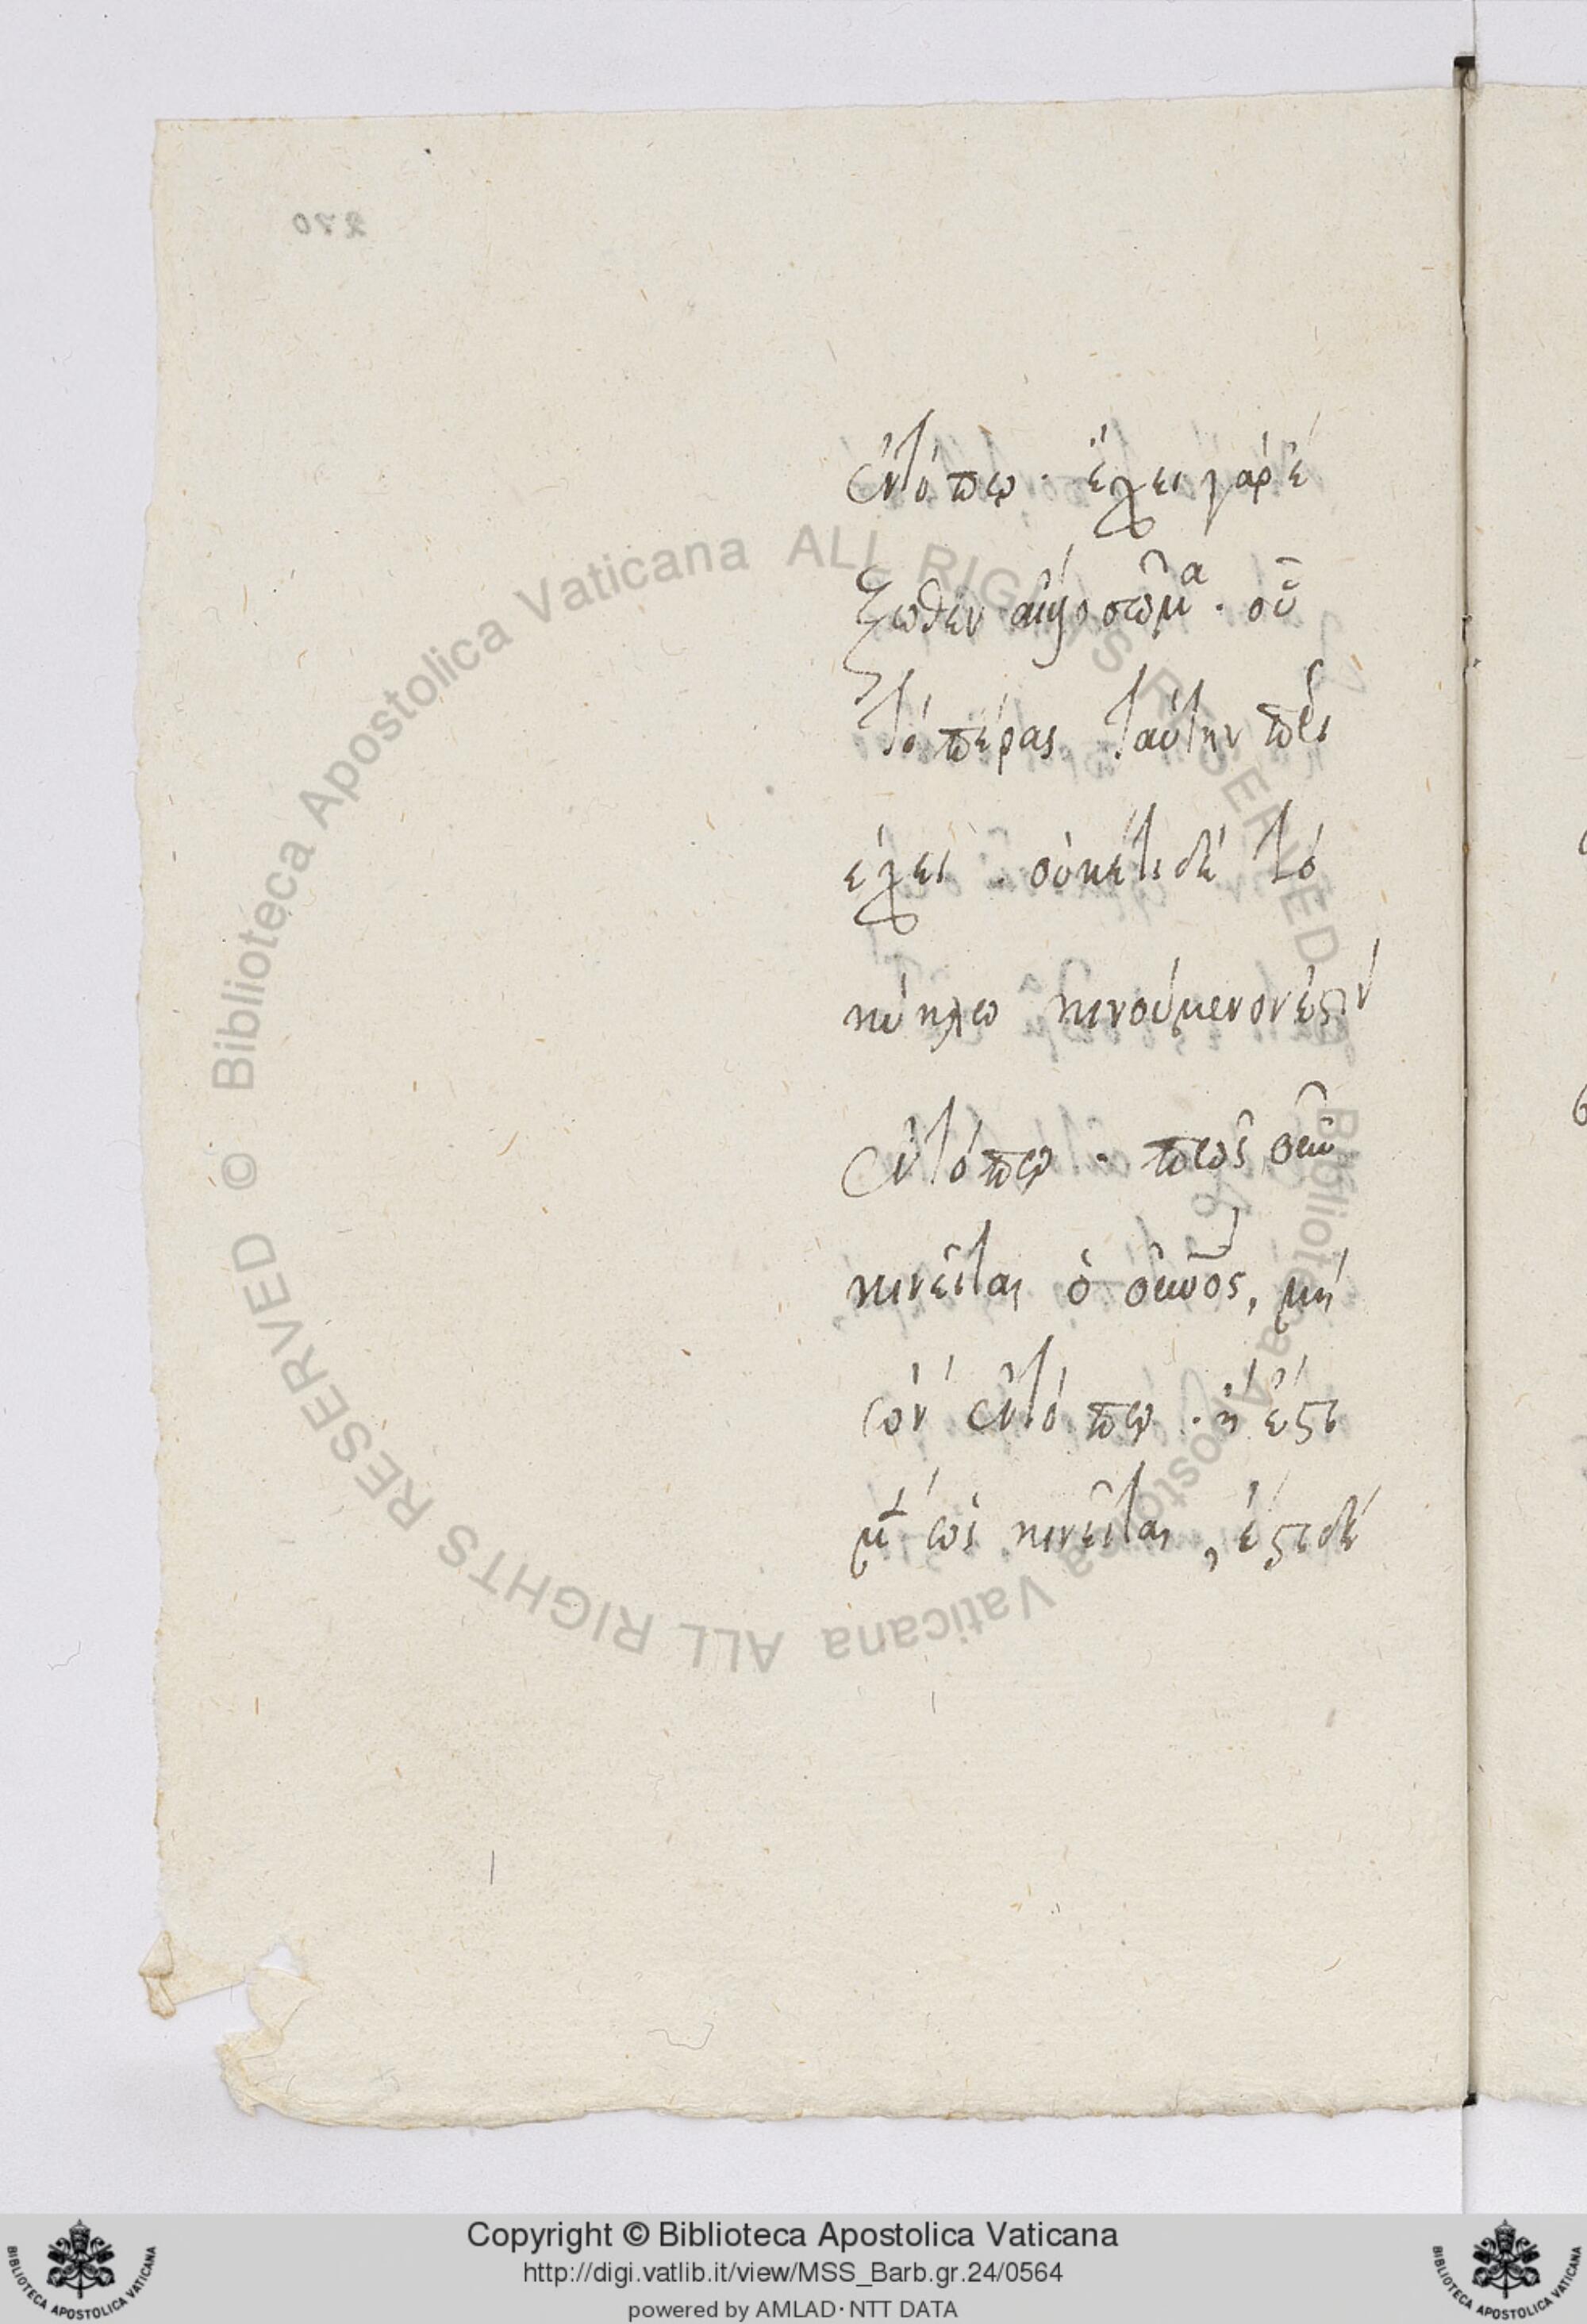 ἐν τόπῳ. ἔχει γὰρ ἔ
ξωθέν τι σῶμα. οὗ
τὸ πέρας ταύτην περι
έχει. οὐκέτι δὲ τὸ
κύκλῳ κινούμενον ἐστὶν
ἐν τόπῳ. πῶς οὖν
κινεῖται ὁ οὐνος, μὴ
ὢν ἐν τόπῳ. ἢ ἔστι
μὲν ὡς κινεῖται, ἔστι δὲ
270
Biblioteca Apostolica Vaticana ALL RIGHTS RESERVED
Biblioteca Apostolica Vaticana ALL RIGHTS RESERVED ©
Copyright © Biblioteca Apostolica Vaticana
http://digi.vatlib.it/view/MSS_Barb.gr.24/0564
powered by AMLAD · NTT DATA
BIBLIOTECA APOSTOLICA VATICANA
BIBLIOTECA APOSTOLICA VATICANA